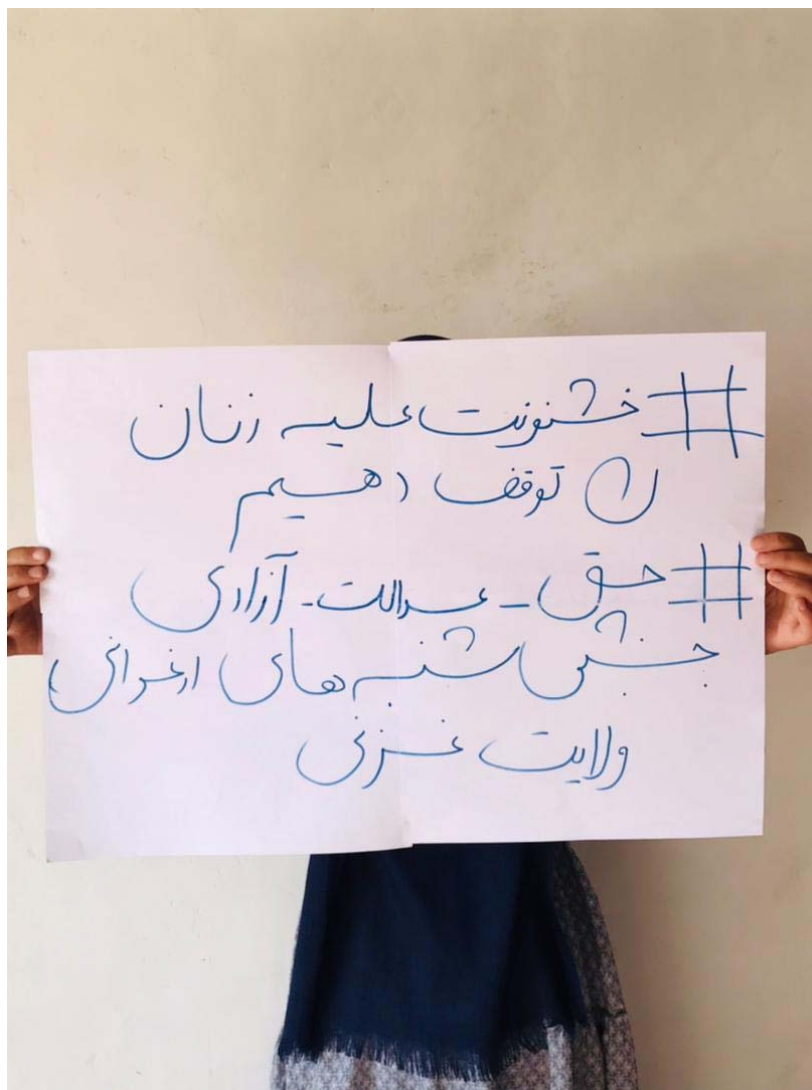 #خشونت علیه زنان
را توقف دهیم
#حق - عدالت - آزادی
جنبش شنبه های ارغوانی
ولایت غزنی